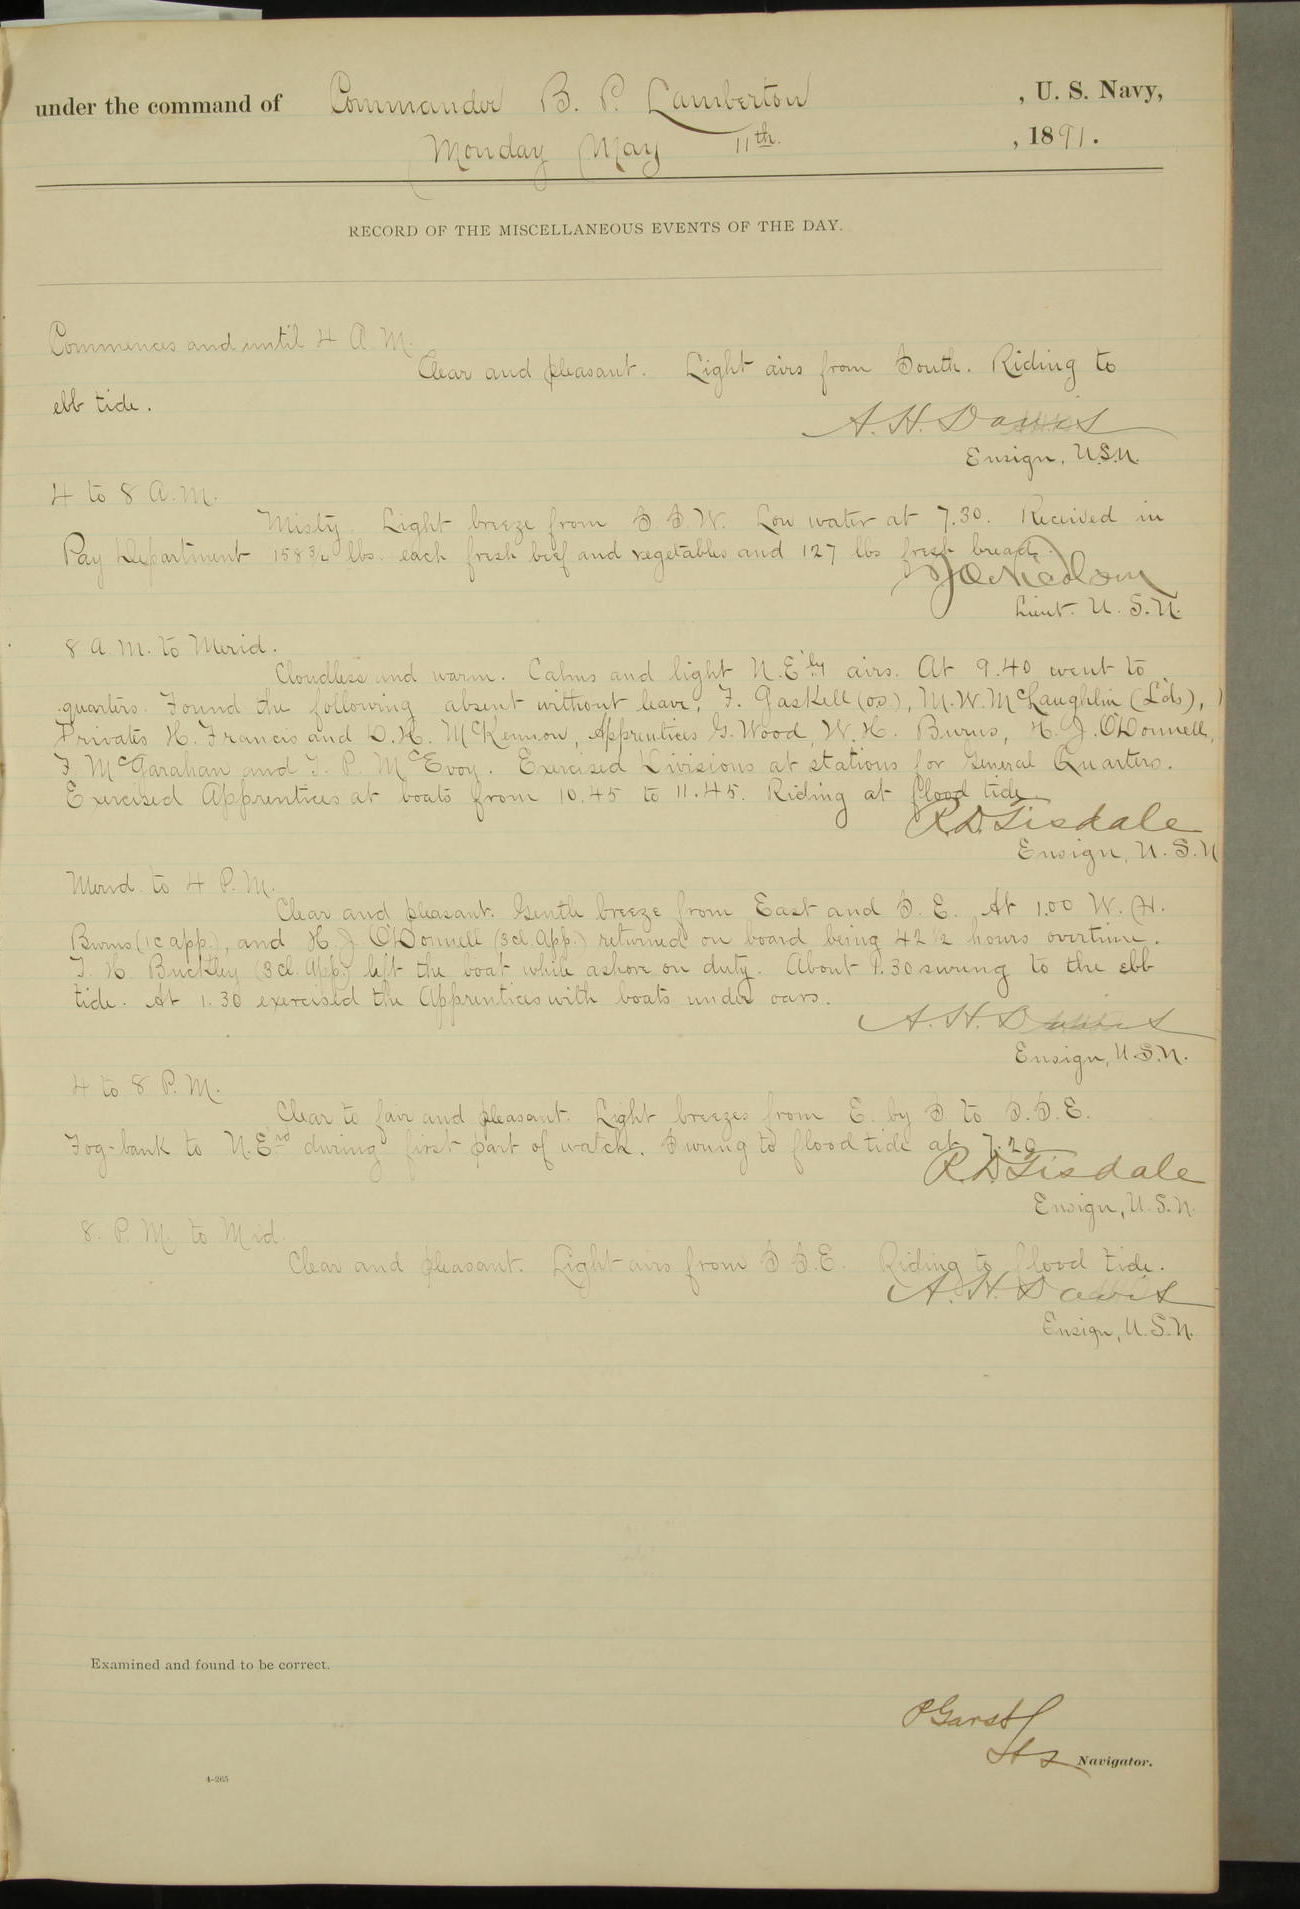 under the command of Commander B. P. Lamberton , U. S. Navy,
Monday May 11th. , 1891.
RECORD OF THE MISCELLANEOUS EVENTS OF THE DAY.
Commences and until 4 A. M.
Clear and pleasant. Light airs from South. Riding to
ebb tide.
A. H. Davis
Ensign, U.S.N.
4 to 8 A. M.
Misty. Light breeze from S. S. W. Low water at 7.30. Received in
Pay Department 158 3/4 lbs. each fresh beef and vegetables and 127 lbs fresh bread.
Lieut. U. S. N.
8 A. M. to Merid.
Cloudless and warm. Calms and light N. E'ly airs. At 9.40 went to
quarters. Found the following absent without leave, F. Gaskell (os), M. W. McLaughlin (Lds),
Privates H. Francis and D. H. McKennon, Apprentices G. Wood, W. H. Burns, H. J. O'Donnell,
F McGarahan and T. P. McEvoy. Exercised Divisions at stations for General Quarters.
Exercised Apprentices at boats from 10.45 to 11.45. Riding at flood tide.
R. D. Tisdale
Ensign, U. S. N
Merid. to 4 P. M.
Clear and pleasant. Gentle breeze from East and S. E. At 1.00 W. H.
Burns (1c app.), and H. J. O'Donnell (3 cl. App.) returned on board being 42 1/2 hours overtime.
T. H. Buckley (3 cl. App) left the boat while ashore on duty. About 1.30 swung to the ebb
tide. At 1.30 exercised the Apprentices with boats under oars.
A. H. Davis
Ensign, U.S.N.
4 to 8 P. M.
Clear to fair and pleasant. Light breezes from E. by S. to S. S. E.
Fog-bank to N. E'rd during first part of watch. Swung to flood tide at 7.20
R. D. Tisdale
Ensign, U. S. N.
8. P. M. to Mid.
Clear and pleasant. Light airs from S S. E. Riding to flood tide.
A. H. Davis
Ensign, U. S. N.
Examined and found to be correct.
P Garst
Navigator.
4-265